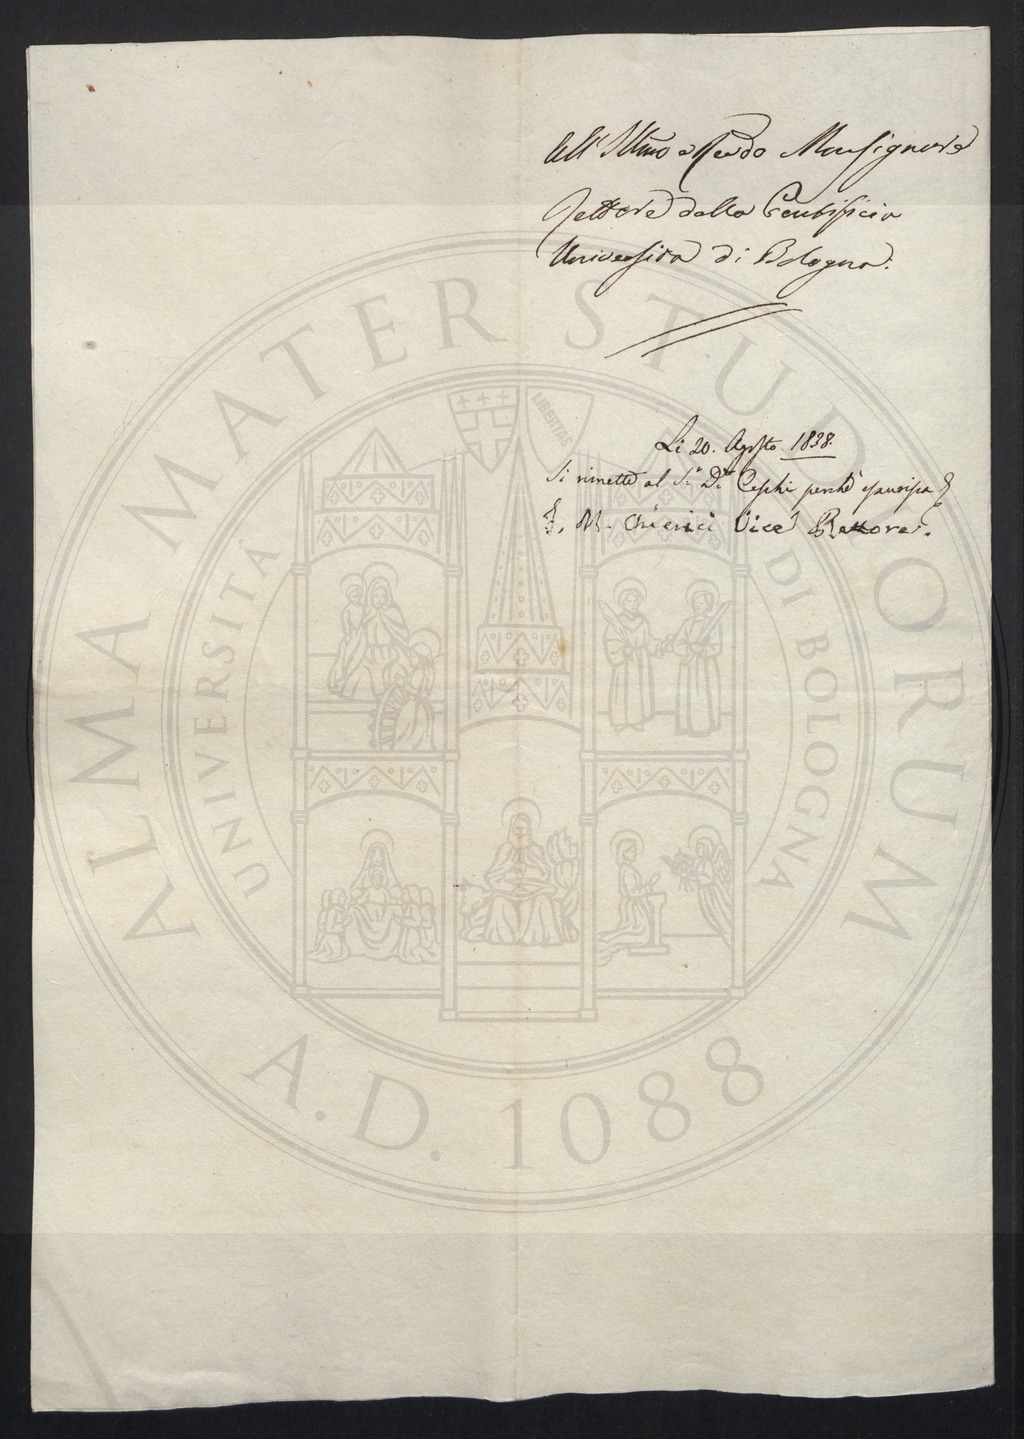 All' Illmo e Revdo Monsignore
Rettore della Pontificia
Università di Bologna.
Li 20. Agosto 1838.
Si rimette al Sig. Dr. perchè esaurisca
F. M. Chierici Vice Rettore.
ALMA MATER STUDIORUM
UNIVERSITÀ DI BOLOGNA
LIBERTAS
A.D. 1088